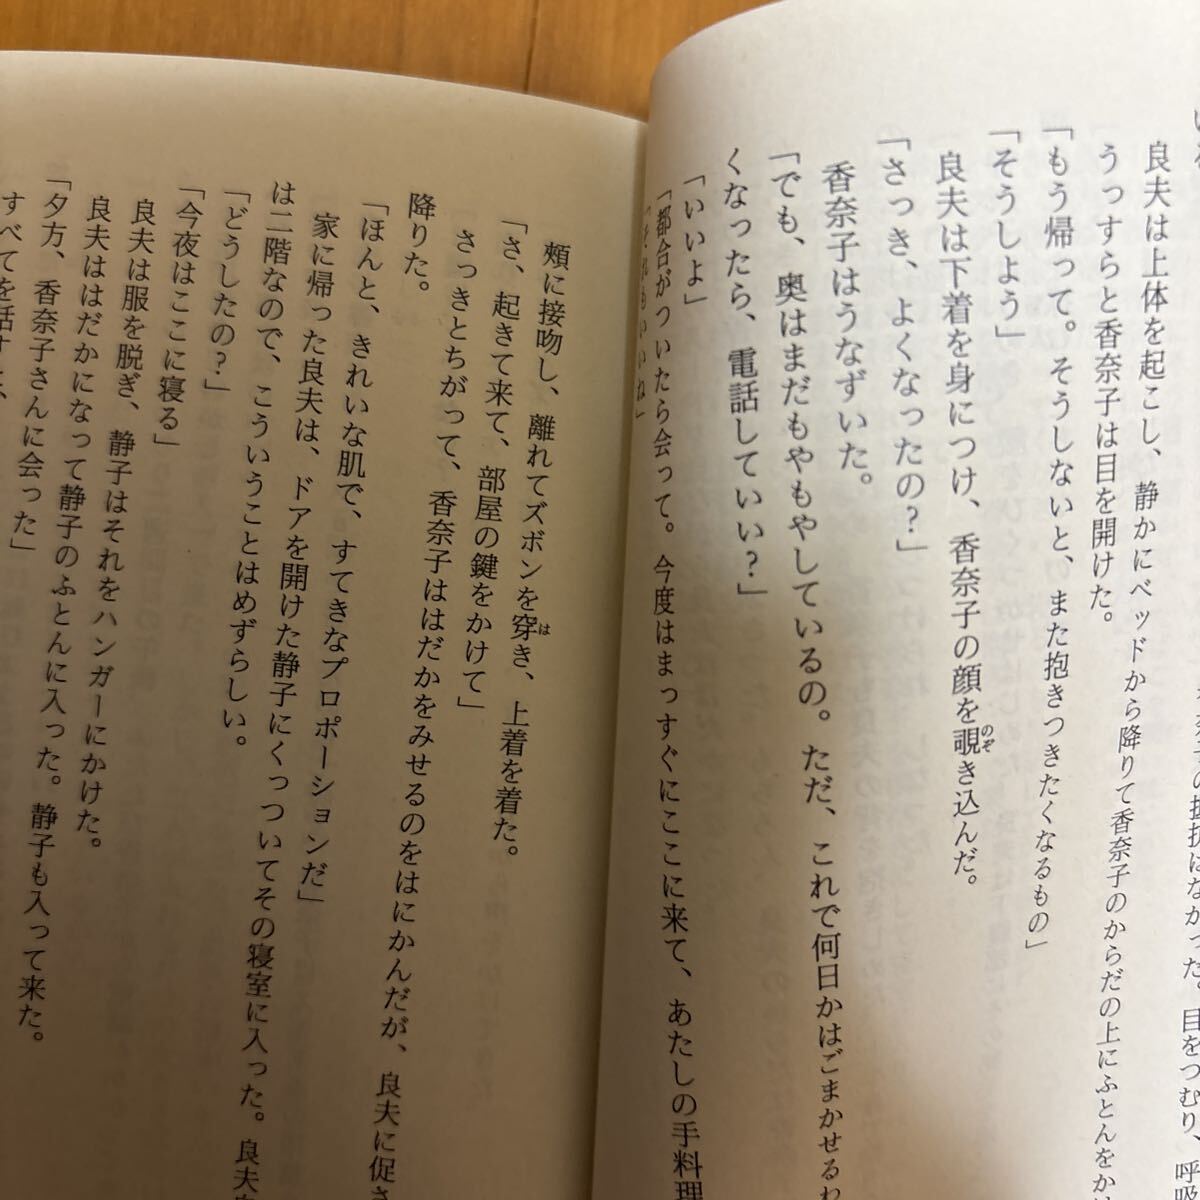 良夫は上体を起こし、静かにベッドから降りて香奈子のからだの上にふとんをか
うっすらと香奈子は目を開けた。
「もう帰って。そうしないと、また抱きつきたくなるもの」
「そうしよう」
良夫は下着を身につけ、香奈子の顔を覗き込んだ。
「さっき、よくなったの？」
香奈子はうなずいた。
「でも、奥はまだもやもやしているの。ただ、これで何日かはごまかせるわ
くなったら、電話していい？」
「いいよ」
「都合がついたら会って。今度はまっすぐにここに来て、あたしの手料理
「それもいいね」
頰に接吻し、離れてズボンを穿き、上着を着た。
「さ、起きて来て、部屋の鍵をかけて」
さっきとちがって、香奈子ははだかをみせるのをはにかんだが、良夫に促さ
降りた。
「ほんと、きれいな肌で、すてきなプロポーションだ」
家に帰った良夫は、ドアを開けた静子にくっついてその寝室に入った。良夫
は二階なので、こういうことはめずらしい。
「どうしたの？」
「今夜はここに寝る」
良夫は服を脱ぎ、静子はそれをハンガーにかけた。
良夫ははだかになって静子のふとんに入った。静子も入って来た。
「夕方、香奈子さんに会った」
すべてを話す